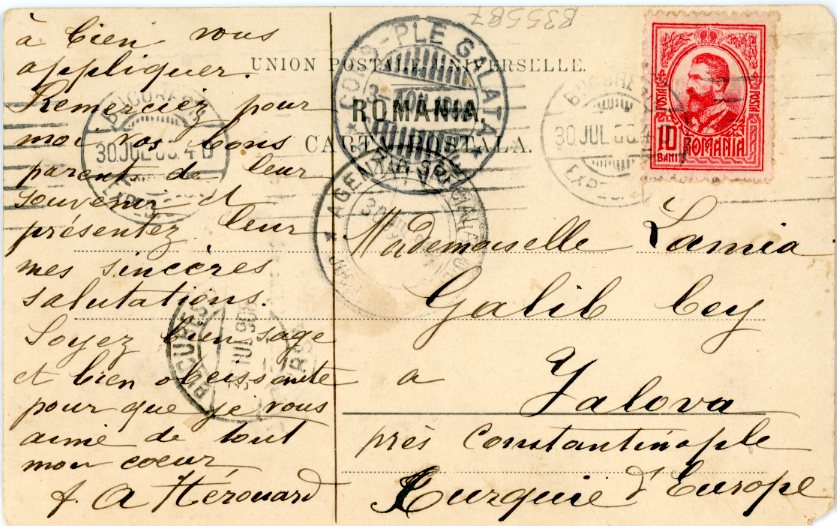 à bien vous
appliquer.
Remerciez pour
moi vos bons
parents de leur
souvenir et
présentez leur
mes sincères
salutations.
Soyez bien sage
et bien obeissante
pour que je vous
aime de tout
mon coeur,
A Hérouard
B35587
UNION POSTALE UNIVERSELLE.
ROMÂNIA.
CARTA POSTALA.
CONS-PLE GALATA
30 JUL
30 JUL
POSTA
10
BANI
ROMANIA
Mademoiselle Lamia
Galib bey
a
Yalova
près Constantinople
Turquie d'Europe